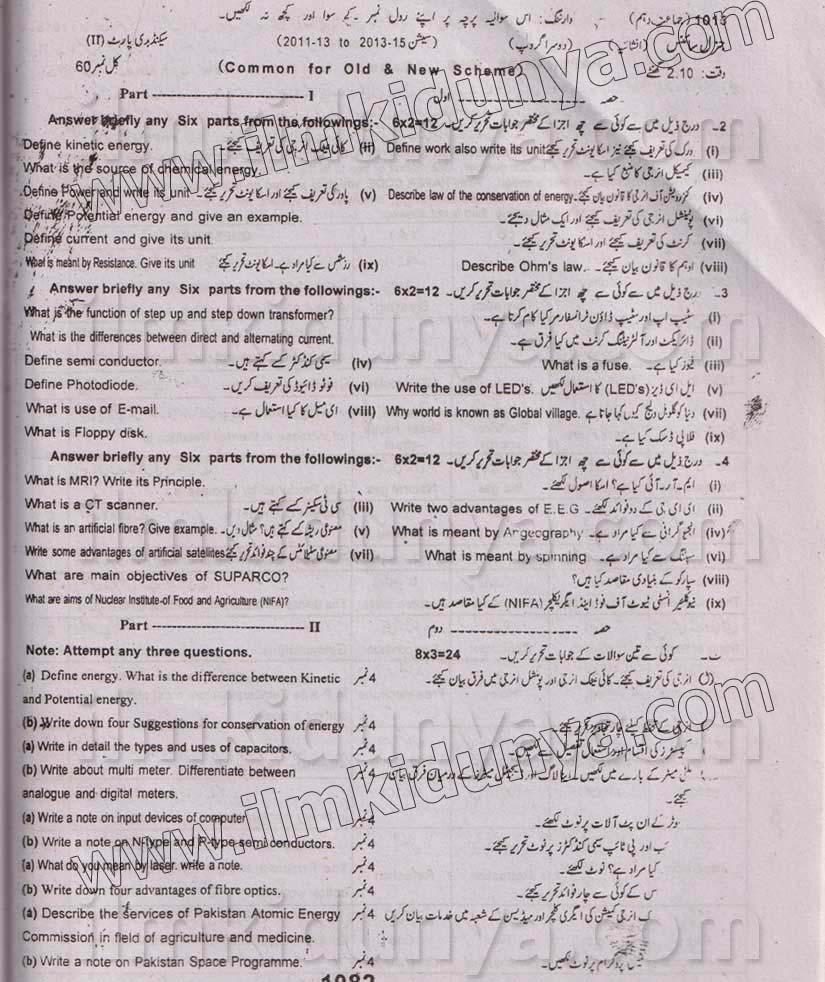 1013 (جماعت دہم) وارننگ: اس سوالیہ پرچہ پر اپنے رول نمبر کے سوا اور کچھ نہ لکھیں۔
جنرل سائنس (انشائیہ) (دوسرا گروپ) (سیشن 2011-13 to 2013-15) سیکنڈری پارٹ (II)
وقت: 2.10 گھنٹے (Common for Old & New Scheme) کل نمبر 60
Part I حصہ اول
Answer briefly any Six parts from the followings:- 6x2=12 2۔ درج ذیل میں سے کوئی سے چھ اجزا کے مختصر جوابات تحریر کریں۔
Define kinetic energy. کائی نیٹک انرجی کی تعریف کیجئے (ii) Define work also write its unit ورک کی تعریف کیجئے نیز اسکا یونٹ تحریر کیجئے (i)
What is the source of chemical energy. کیمیکل انرجی کا منبع کیا ہے۔ (iii)
Define Power and write its unit پاور کی تعریف کیجئے اور اسکا یونٹ تحریر کیجئے (v) Describe law of the conservation of energy. کنزرویشن آف انرجی کا قانون بیان کیجئے (iv)
Define Potential energy and give an example. پوٹینشل انرجی کی تعریف کیجئے اور ایک مثال دیجئے۔ (vi)
Define current and give its unit. کرنٹ کی تعریف کیجئے اور اسکا یونٹ تحریر کیجئے۔ (vii)
What is meant by Resistance. Give its unit رزسٹنس سے کیا مراد ہے۔ اسکا یونٹ تحریر کیجئے (ix) Describe Ohm's law. اوہم کا قانون بیان کیجئے۔ (viii)
Answer briefly any Six parts from the followings:- 6x2=12 3۔ درج ذیل میں سے کوئی سے چھ اجزا کے مختصر جوابات تحریر کریں۔
What is the function of step up and step down transformer? سٹیپ اپ اور سٹیپ ڈاؤن ٹرانسفارمر کیا کام کرتا ہے۔ (i)
What is the differences between direct and alternating current. ڈائریکٹ اور آلٹرنیٹنگ کرنٹ میں کیا فرق ہے۔ (ii)
Define semi conductor. سیمی کنڈکٹر کسے کہتے ہیں۔ (iv) What is a fuse. فیوز کیا ہے۔ (iii)
Define Photodiode. فوٹو ڈائیوڈ کی تعریف کریں۔ (vi) Write the use of LED's. ایل ای ڈیز (LED's) کا استعمال لکھیں (v)
What is use of E-mail. ای میل کا کیا استعمال ہے۔ (viii) Why world is known as Global village. دنیا کو گلوبل ویلج کیوں کہا جاتا ہے (vii)
What is Floppy disk. فلاپی ڈسک کیا ہے۔ (ix)
Answer briefly any Six parts from the followings:- 6x2=12 4۔ درج ذیل میں سے کوئی سے چھ اجزا کے مختصر جوابات تحریر کریں۔
What is MRI? Write its Principle. ایم۔ آر۔ آئی کیا ہے؟ اسکا اصول لکھئے۔ (i)
What is a CT scanner. سی ٹی سکینر کسے کہتے ہیں۔ (iii) Write two advantages of E.E.G ای ای جی کے دو فوائد لکھئے۔ (ii)
What is an artificial fibre? Give example. مصنوعی ریشہ کسے کہتے ہیں؟ مثال دیں۔ (v) What is meant by Angeography انجیوگرافی سے کیا مراد ہے۔ (iv)
Write some advantages of artificial satellites مصنوعی سٹلائٹس کے چند فوائد تحریر کیجئے (vii) What is meant by spinning سپننگ سے کیا مراد ہے۔ (vi)
What are main objectives of SUPARCO? سپارکو کے بنیادی مقاصد کیا ہیں؟ (viii)
What are aims of Nuclear Institute-of Food and Agriculture (NIFA)? نیوکلیئر انسٹی ٹیوٹ آف فوڈ اینڈ ایگریکلچر (NIFA) کے کیا مقاصد ہیں۔ (ix)
Part II حصہ دوم
Note: Attempt any three questions. 8x3=24 کوئی سے تین سوالات کے جوابات تحریر کریں۔
(a) Define energy. What is the difference between Kinetic 4نمبر انرجی کی تعریف کیجئے۔ کائی نیٹک انرجی اور پوٹینشل انرجی میں فرق بیان کیجئے۔
and Potential energy.
(b) Write down four Suggestions for conservation of energy 4نمبر
(a) Write in detail the types and uses of capacitors. 4نمبر
(b) Write about multi meter. Differentiate between 4نمبر
analogue and digital meters. کیجئے۔
(a) Write a note on input devices of computer 4نمبر وٹر کے ان پٹ آلات پر نوٹ لکھئے۔
(b) Write a note on N-type and P-type semi conductors. 4نمبر اور پی ٹائپ سیمی کنڈکٹرز پر نوٹ تحریر کیجئے۔
(a) What do you mean by laser. write a note. 4نمبر کیا مراد ہے؟ نوٹ لکھئے۔
(b) Write down four advantages of fibre optics. 4نمبر س کے کوئی سے چار فوائد تحریر کیجئے۔
(a) Describe the services of Pakistan Atomic Energy 4نمبر ک انرجی کمیشن کی ایگری کلچر اور میڈیسن کے شعبہ میں خدمات بیان کریں
Commission in field of agriculture and medicine.
(b) Write a note on Pakistan Space Programme. 4نمبر پروگرام پر نوٹ لکھیں۔
www.ilmkidunya.com
www.ilmkidunya.com
ilmkidunya.com
ilmkidunya.com